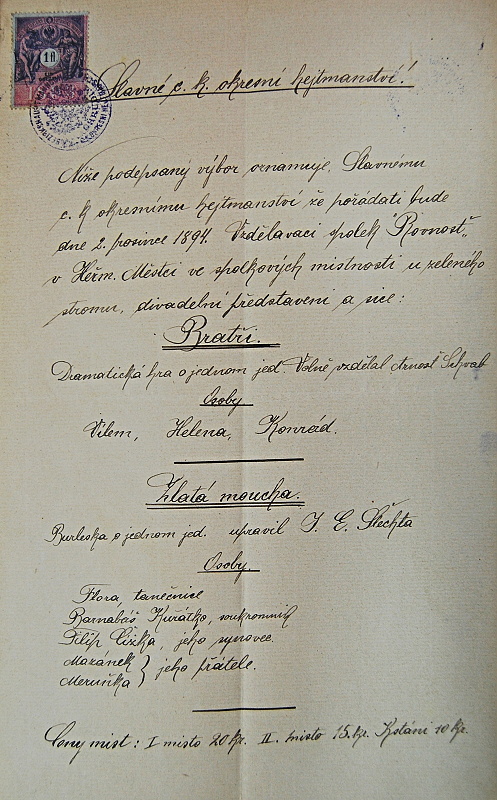 1 fl
Slavné c. k. okresní hejtmanství!
Níže podepsaný výbor oznamuje, Slavnému
c. k okresnímu hejtmanství že pořádati bude
dne 2. prosince 1894. Vzdělavací spolek "Rovnost"
v Heřm. Městci ve spolkových místnosti u zeleného
stromu, divadelní představení a sice:
Bratři.
Dramatická hra o jednom jed. Volně vzdělal Arnošt Schwab
Osoby
Vilem, Helena, Konrád.
Zlatá moucha.
Burleska o jednom jed. upravil J. E. Šlechta
Osoby.
Flora, tanečnice
Barnabáš Kuřátko, soukromník
Filip Čížka, jeho synovec.
Mazánek } jeho přátele.
Meruňka
Ceny míst: I místo 20 kr. II. místo 15 kr. K stání 10 kr.